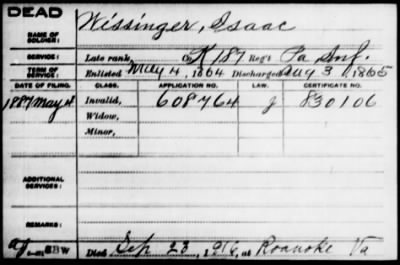 DEAD
NAME OF SOLDIER: Wissinger, Isaac
SERVICE: Late rank, K 187 Reg't Pa Inf.
TERM OF SERVICE: Enlisted May 4, 1864 Discharged Aug 3, 1865
DATE OF FILING. CLASS. APPLICATION NO. LAW. CERTIFICATE NO.
1887 May Invalid, 608764 g 830106
Widow,
Minor,
ADDITIONAL SERVICES:
REMARKS:
EBW Died Sep 23, 1916, at Roanoke Va